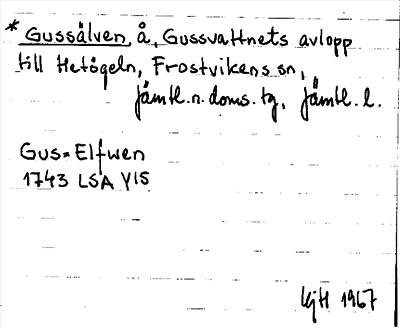 * Gussälven, å, Gussvattnets avlopp
till Hetögeln, Frostvikens sn,
Jämtl.n.doms.tg, Jämtl.l.
Gus=Elfwen
1743 LSA Y15
1967